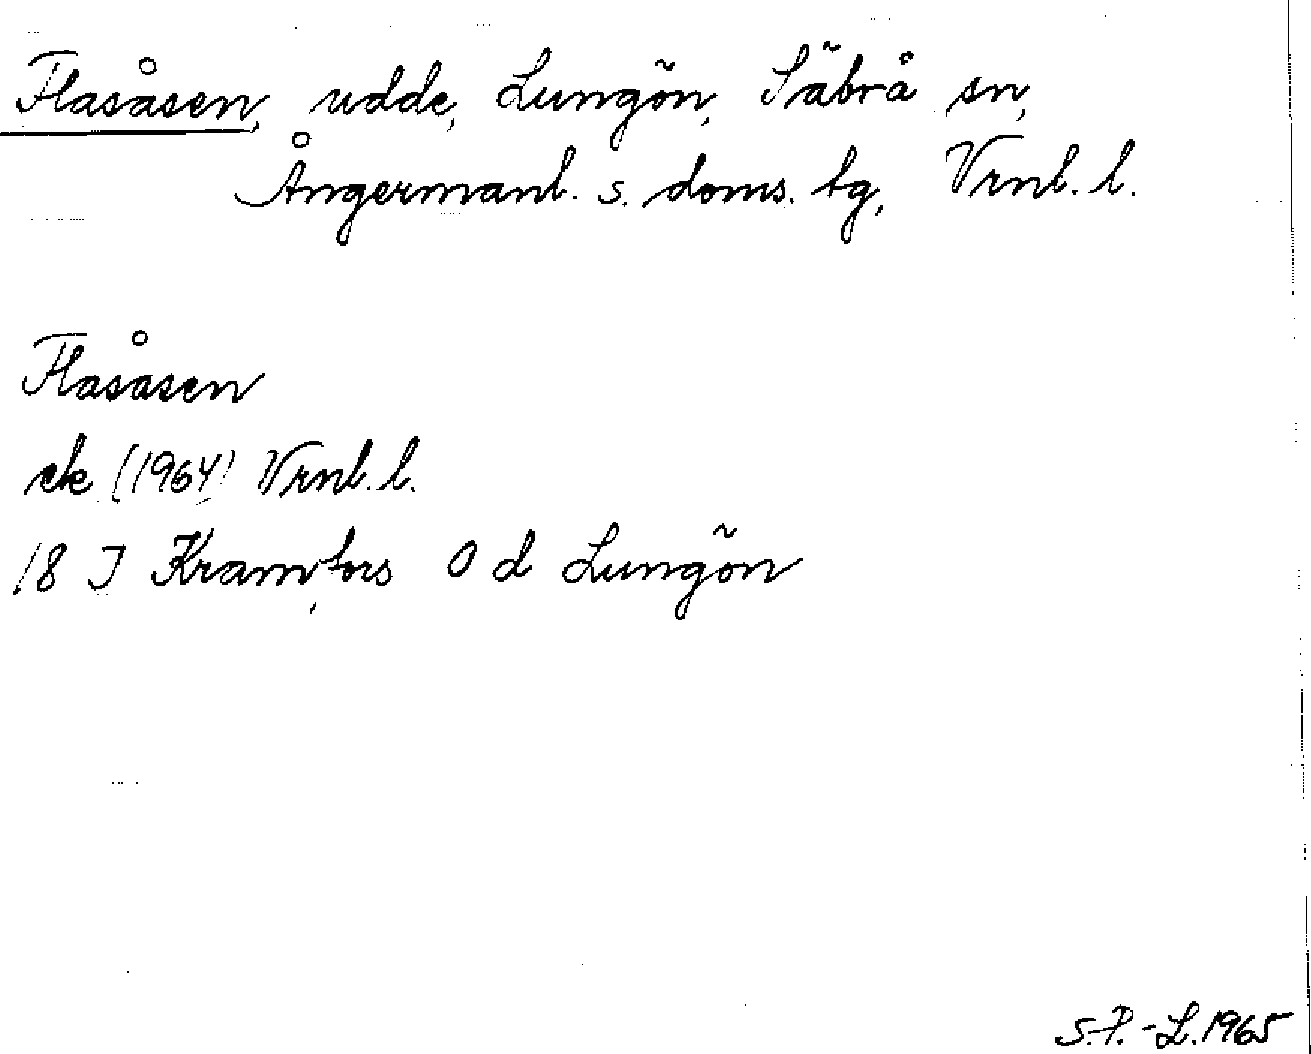 Flasåsen, udde, Lungön, Säbrå sn,
Ångermanl. s. doms. tg, Vrnl. l.
Flasåsen
ek (1964) Vrnl. l.
18 I Kramfors 0 d Lungön
S.P.-L. 1965